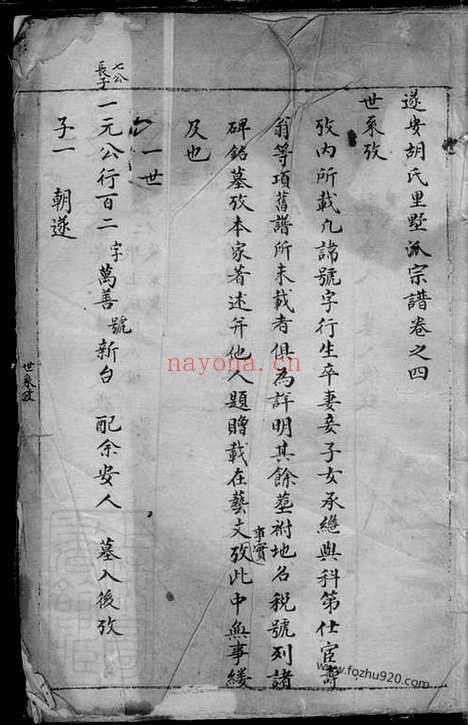 遂安胡氏里墅派宗譜卷之四
世系攷
攷內所載凡諱號字行生卒妻妾子女承繼與科第仕宦壽
翁等項舊譜所未載者俱為詳明其餘墓祔地名稅號列諸
碑銘墓攷本家著述并他人題贈事實載在藝文攷此中無事縷
及也
一世
七公長子一元公行百二字萬善號新台 配余安人 墓入後攷
子一 朝遂
世系攷
nayona.cn
www.fozhu920.com